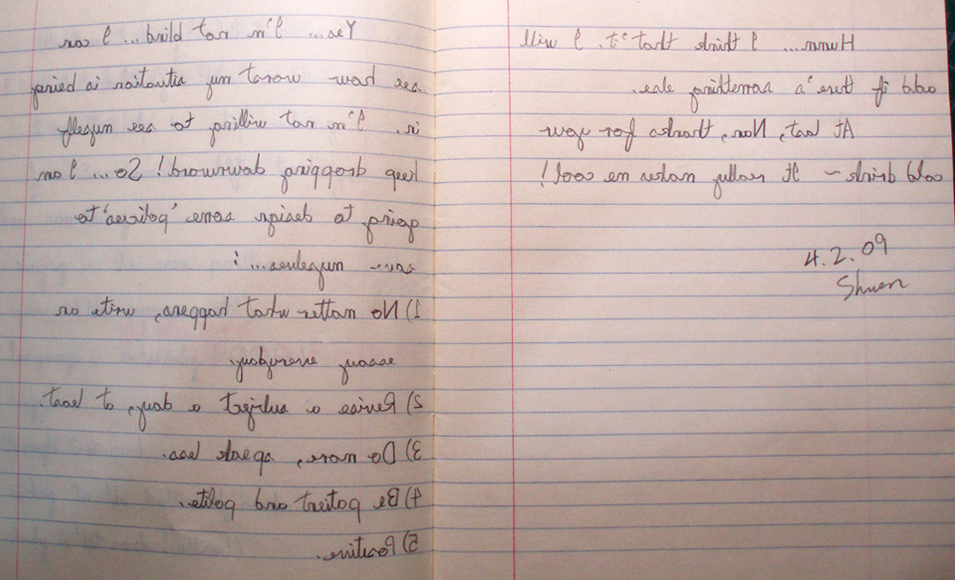 Yea... I'm not blind... I can
see how worst my situation is being
in. I'm not willing to see myself
keep dropping downward! So... I am
going to design some 'policies' to
save myselves... :
1) No matter what happens, write an
essay everyday.
2) Revise a subject a day, at least.
3) Do more, speak less.
4) Be patient and polite.
5) Positive.
Hmm... I think that's it. I will
add if there's something else.
At last, Nan, thanks for your
cold drink ~ It really makes me cool!
4.2.09
Shuen